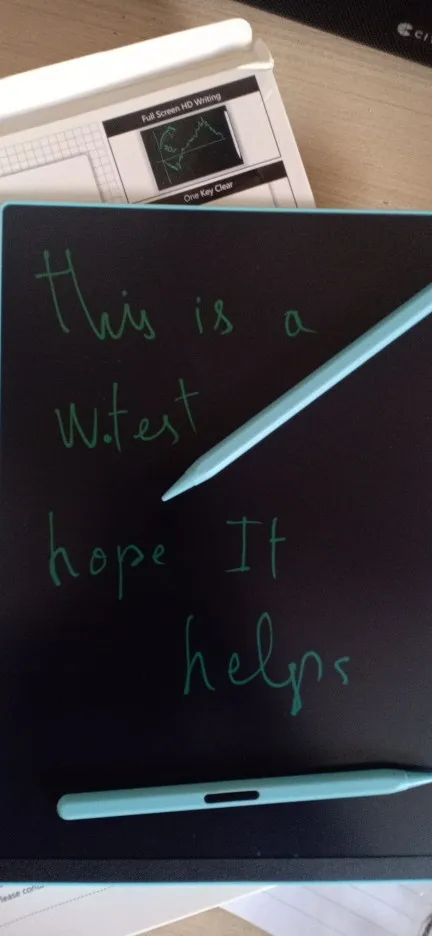 CIT
Full Screen HD Writing
One Key Clear
this is a
w.test
hope It
helps
Please